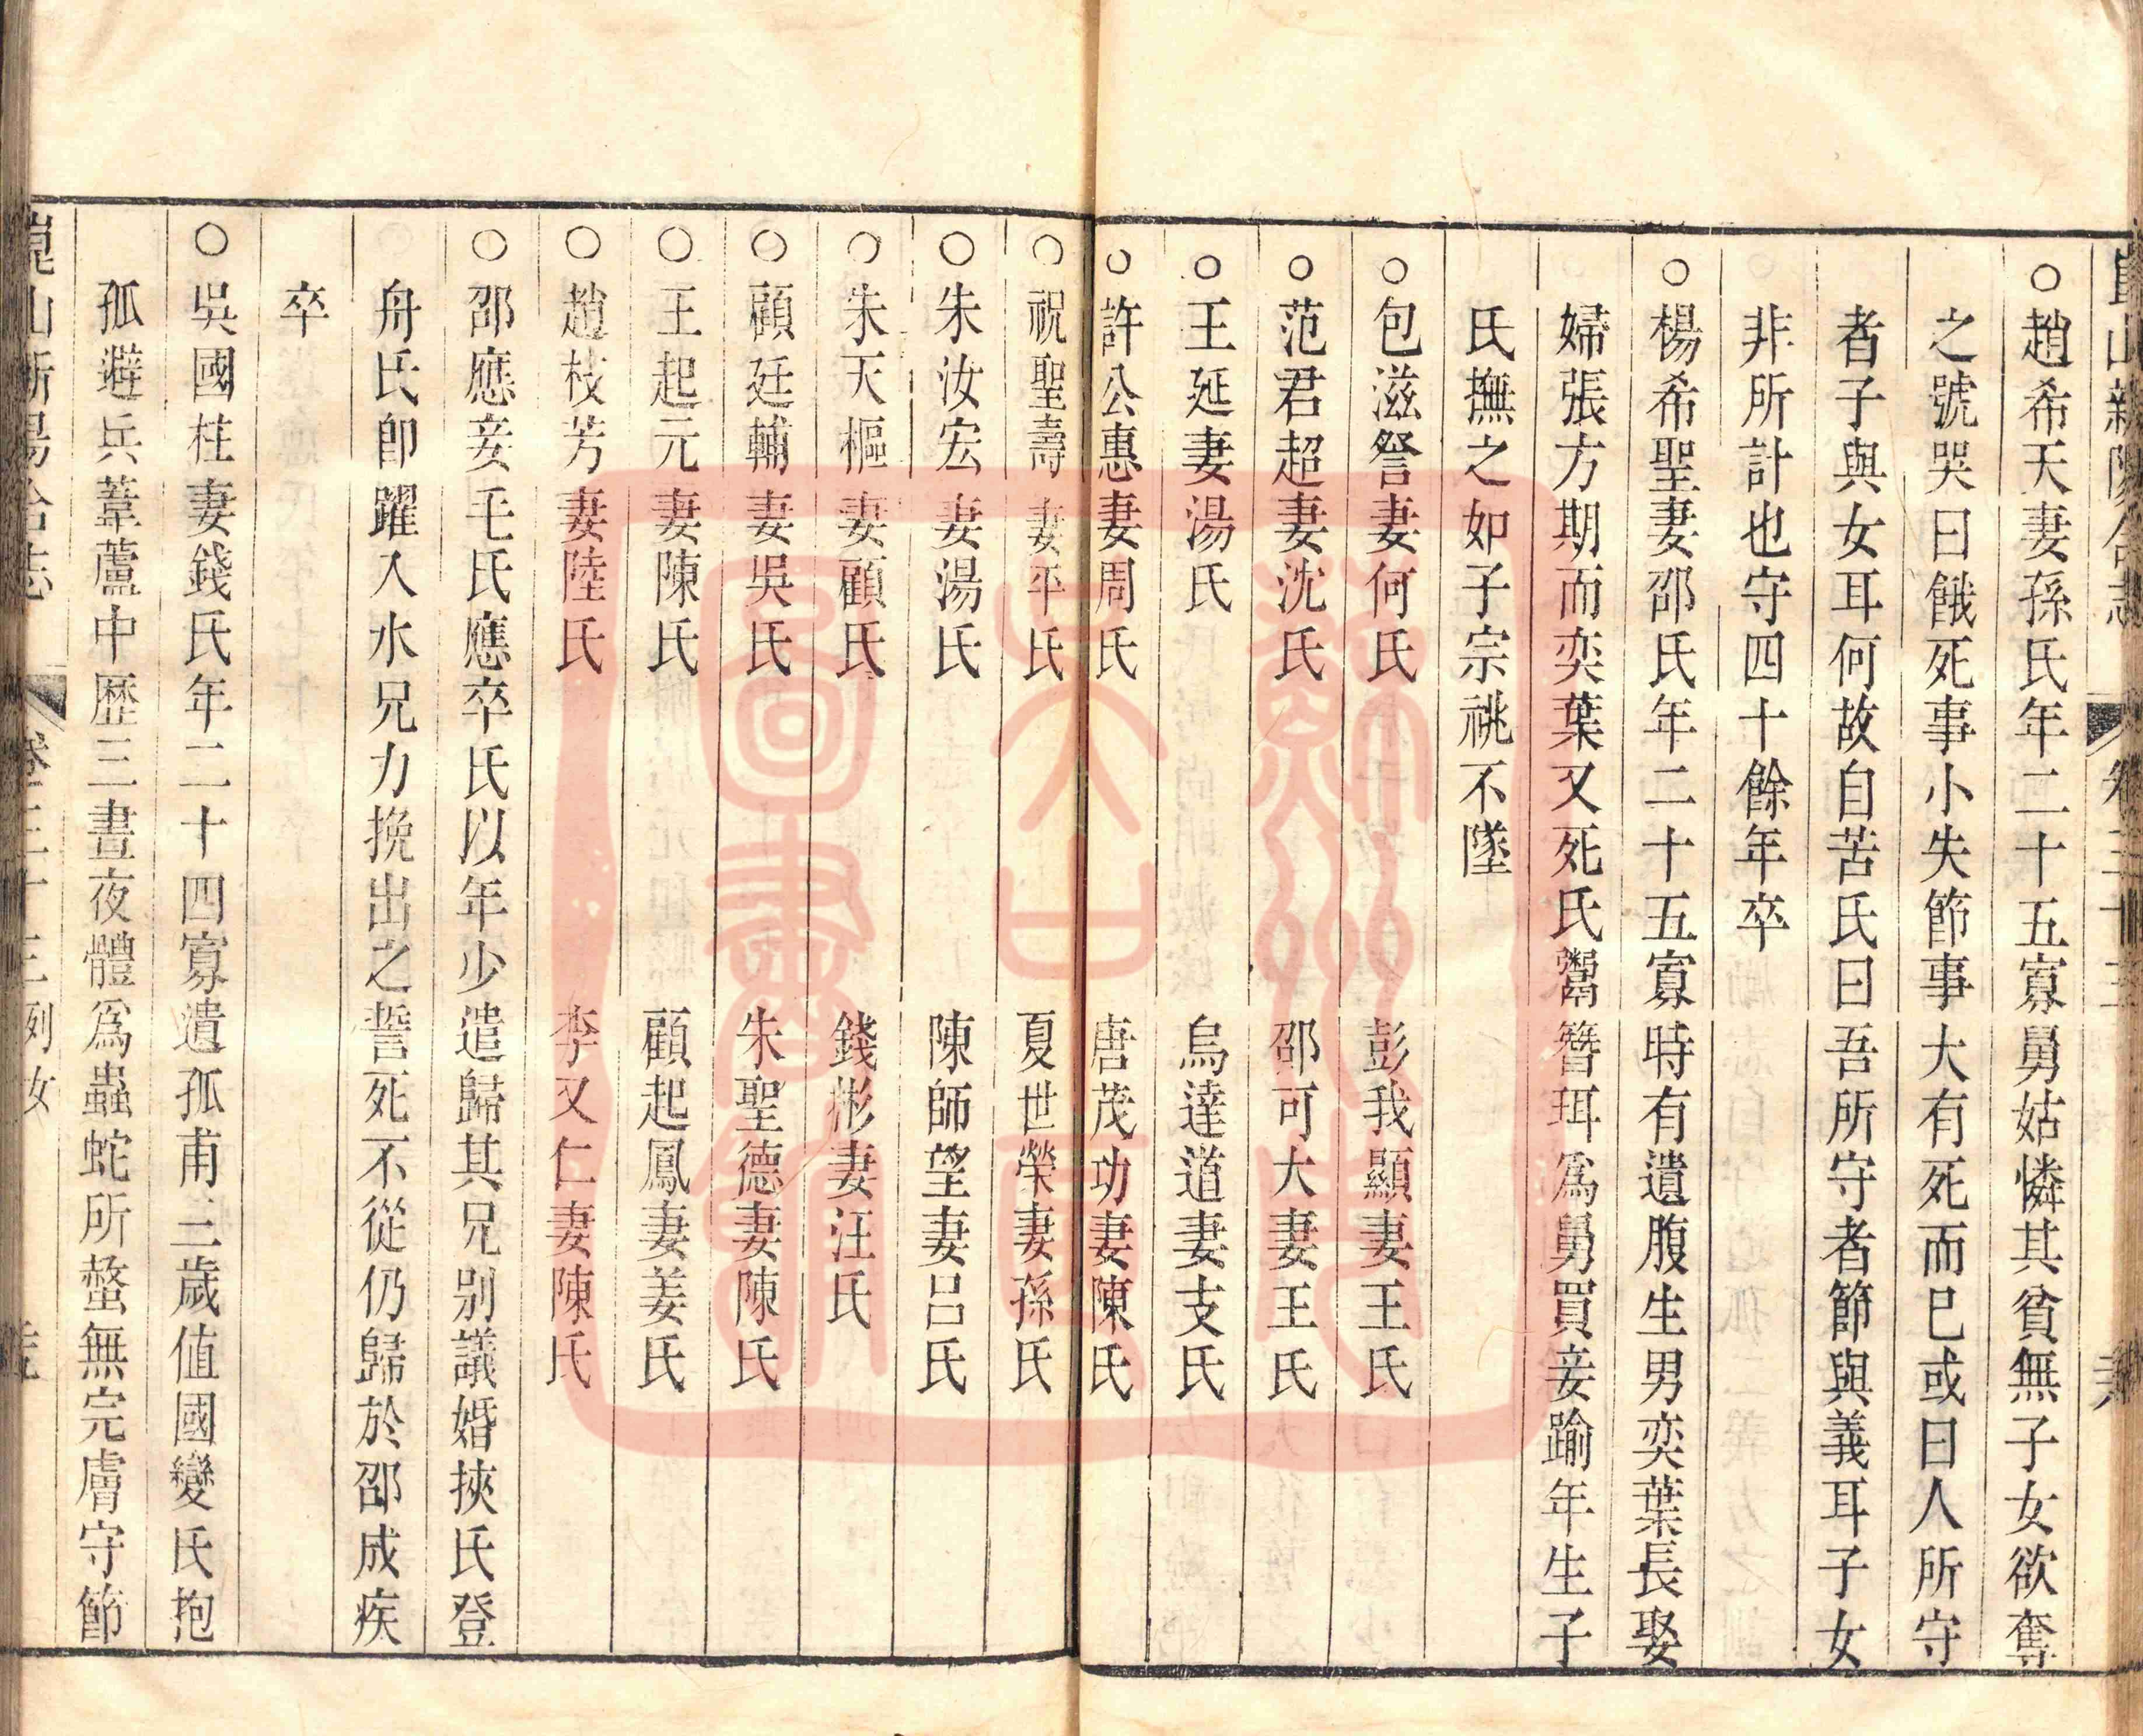 崑山新陽合志 卷三十三
○趙希天妻孫氏年二十五寡舅姑憐其貧無子女欲奪
之號哭曰餓死事小失節事大有死而已或曰人所守
者子與女耳何故自苦氏曰吾所守者節與義耳子女
非所計也守四十餘年卒
○楊希聖妻邵氏年二十五寡時有遺腹生男奕葉長娶
婦張方期而奕葉又死氏鬻簪珥爲舅買妾踰年生子
氏撫之如子宗祧不墜
○包滋詧妻何氏 彭我顯妻王氏
○范君超妻沈氏 邵可大妻王氏
○王延妻湯氏 烏達道妻支氏
○許公惠妻周氏 唐茂功妻陳氏
○祝聖壽妻平氏 夏世榮妻孫氏
○朱汝宏妻湯氏 陳師望妻呂氏
○朱天樞妻顧氏 錢彬妻汪氏
○顧廷輔妻吳氏 朱聖德妻陳氏
○王起元妻陳氏 顧起鳳妻姜氏
○趙枝芳妻陸氏 李又仁妻陳氏
○邵應妾毛氏應卒氏以年少遣歸其兄別議婚挾氏登
舟氏卽躍入水兄力挽出之誓死不從仍歸於邵成疾
卒
○吳國柱妻錢氏年二十四寡遺孤甫三歲值國變氏抱
孤避兵葦蘆中歷三晝夜體爲蟲蛇所螫無完膚守節
崑山新陽合志 卷三十三列女
蘇州大史公圖書館